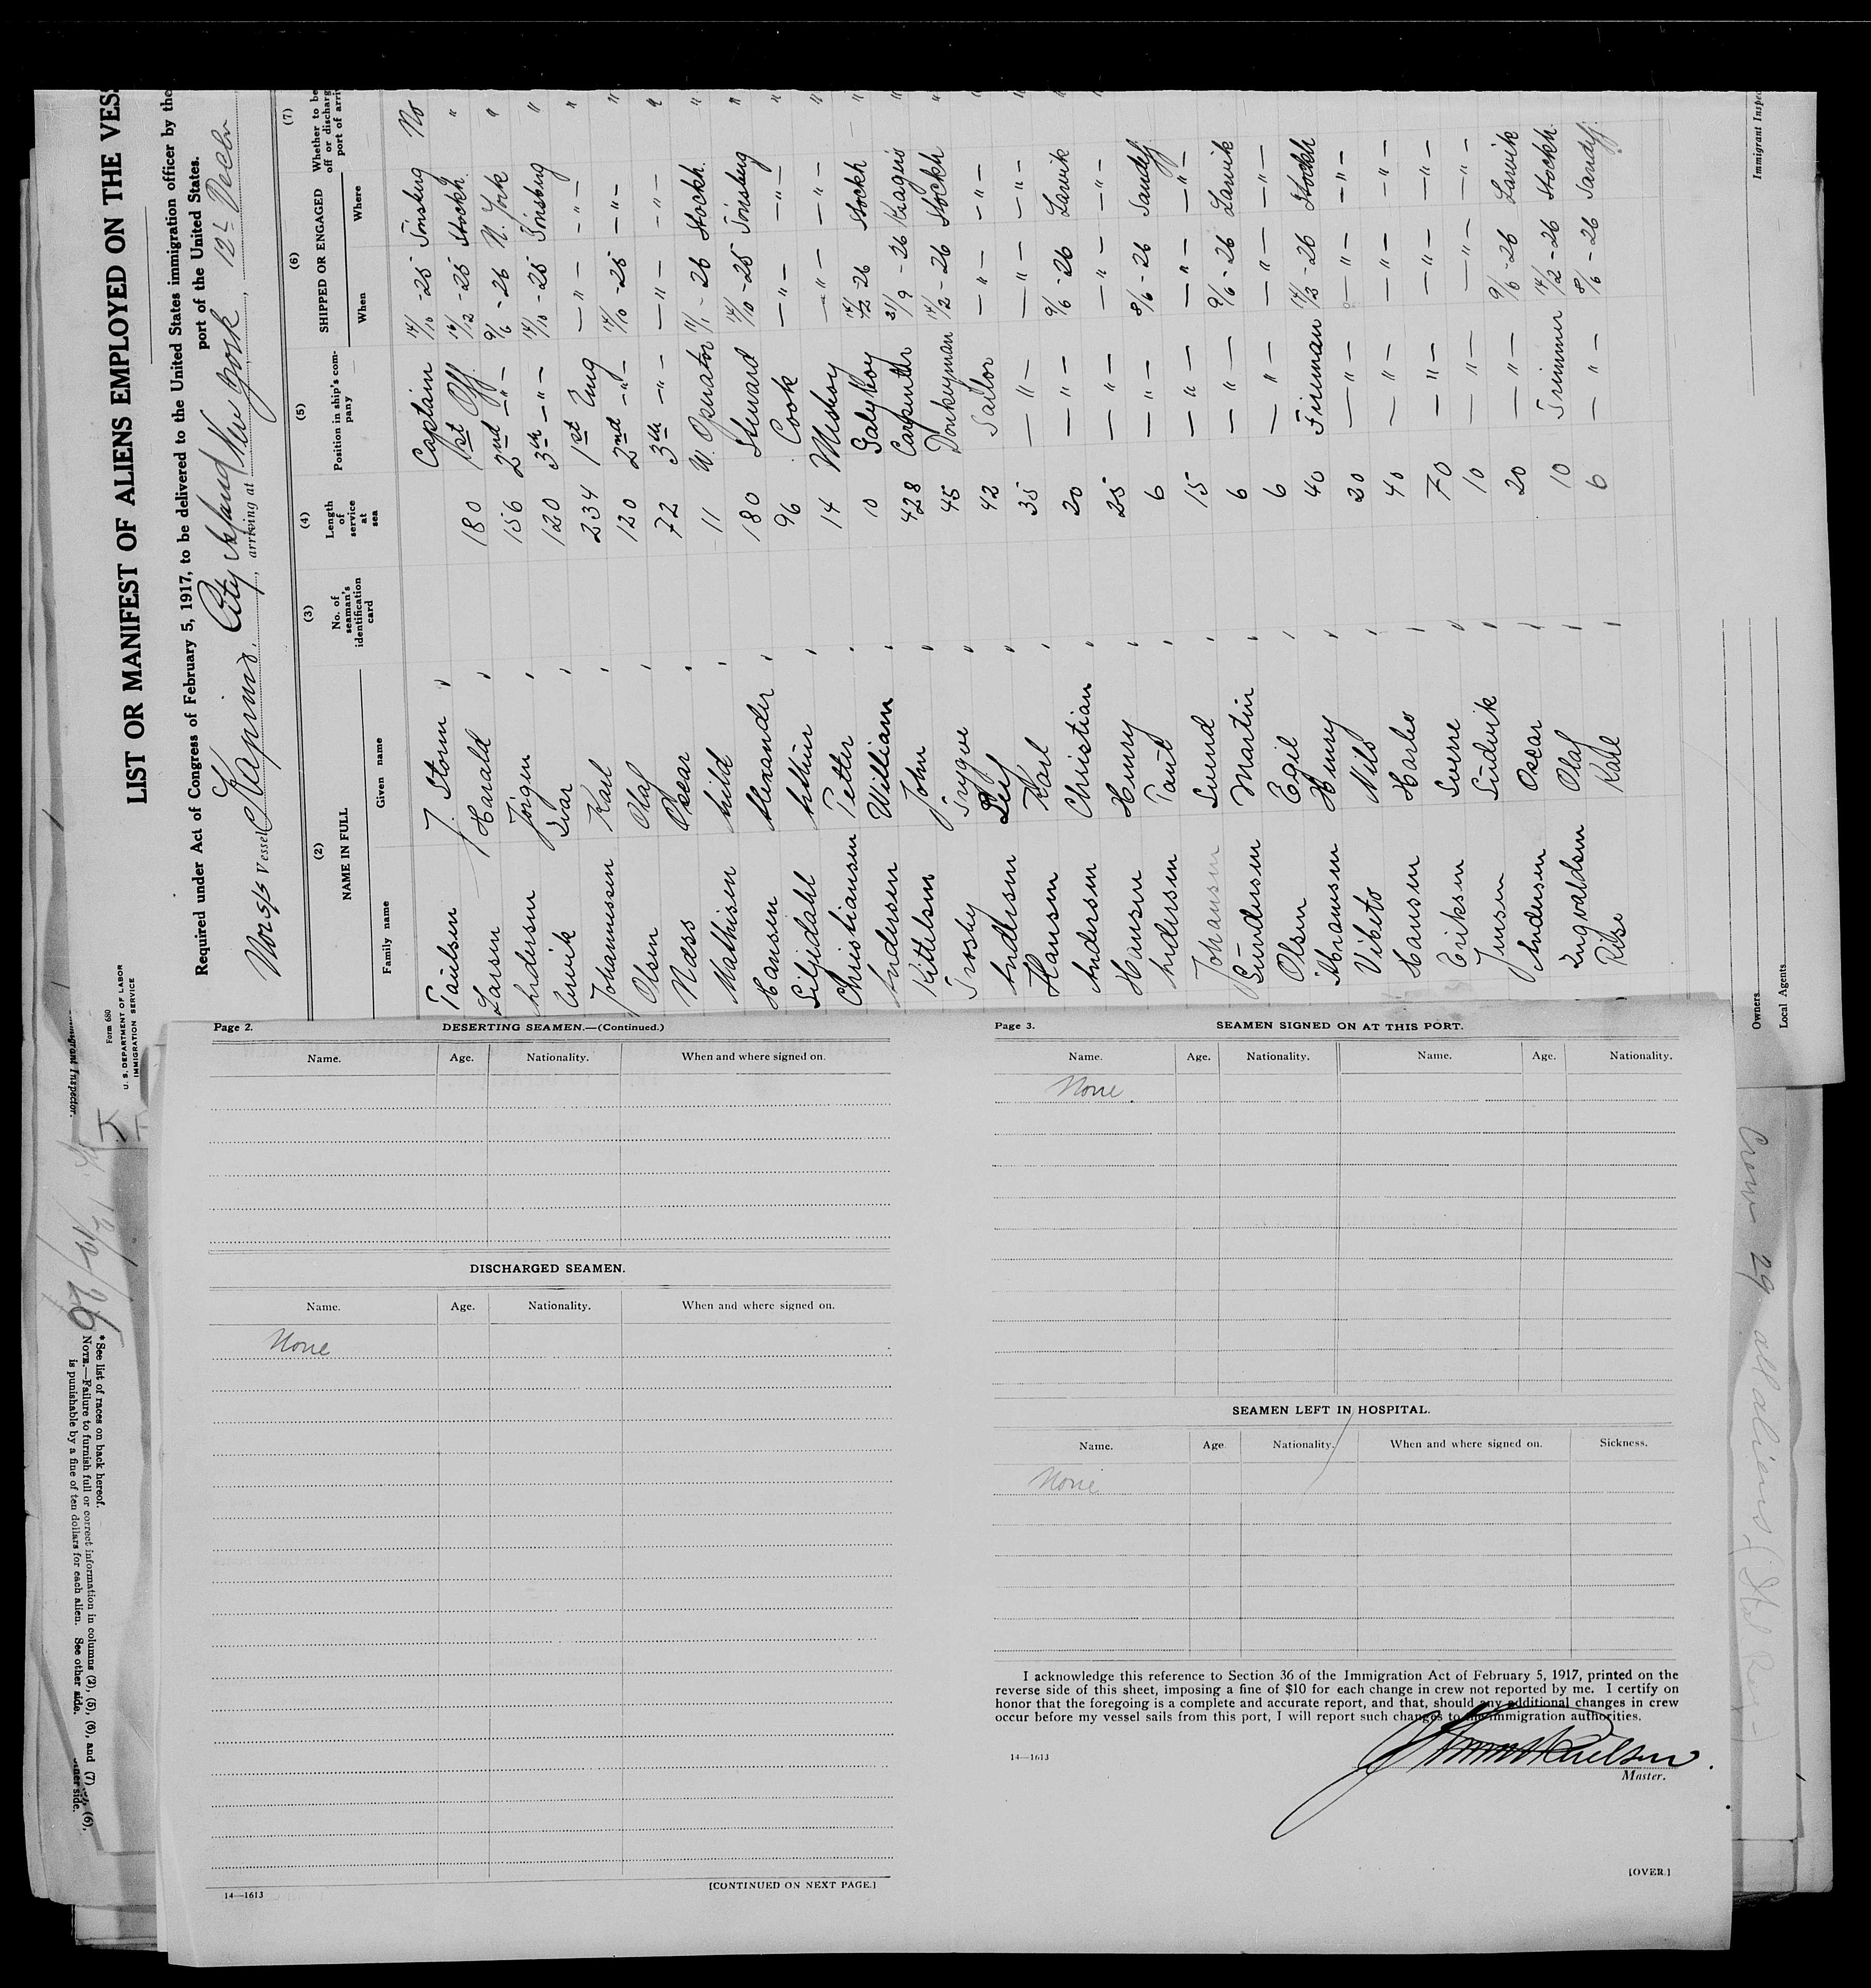 LIST OR MANIFEST OF ALIENS EMPLOYED ON THE VES
Form 680
U. S. DEPARTMENT OF LABOR
IMMIGRATION SERVICE
Required under Act of Congress of February 5, 1917, to be delivered to the United States immigration officer by the
port of the United States.
Vessel arriving at New York, 12
(2) (3) (4) (5) (6) (7)
NAME IN FULL No. of seaman's identification card Length of service at sea Position in ship's company SHIPPED OR ENGAGED Whether to be
Family name Given name When Where
Paulsen J. Storm Captain 14/10 -25 Tönsberg No
Larsen Harald 180 1st Off. Stockh. "
Andersen Jörgen 156 2nd -"- 9/6 -26 N. York "
Ivar 120 3th -"- 14/10 -25 Tönsberg "
Johannessen Karl 234 1st Eng -"- -"- "
Olsen Olaf 120 2nd -"- 14/10 -25 -"- "
Næss Oscar 72 3th -"- -"- -"- "
Mathisen Arild 11 W. Operator -26 Stockh. "
Hansen Alexander 180 Steward 14/10 -25 Tönsberg "
Liljedahl Arthur 96 Cook -"- -"- "
Christiansen Petter 14 Messboy -"- -"- "
Andersen William 10 Galyboy 14/2 -26 Stockh "
Kittelsen John 428 Carpenter 21/9 -26 Kragerö "
Trosby Trygve 45 Donkeyman 14/2 -26 Stockh "
Andersen Leif 42 Sailor -"- -"- "
Hansen Karl 35 -"- -"- -"- "
Andersen Christian 20 -"- 9/6 -26 Larvik "
Hansen Henry 25 -"- -"- -"- "
Andersen Paul 6 -"- 8/6 -26 Sandefj
Johansen 15 -"- -"- -"-
Gundersen Martin 6 -"- 9/6 -26 Larvik
Olsen Egil 6 -"- -"- -"-
Abramsen Henry 40 Fireman 14/2 -26 Stockh
Vibeto Nils 20 -"- -"- -"-
Hansen 40 -"- -"- -"-
Eriksen Sverre 70 -"- -"- -"-
Jensen Ludvik 10 -"- -"- -"-
Andersen Oscar 20 -"- 9/6 -26 Larvik
Ingvaldsen Olaf 10 Trimmer 14/2 -26 Stockh.
Kåre 6 -"- 8/6 -26 Sandefj.
Owners
Local Agents
Page 2. DESERTING SEAMEN.—(Continued.)
Name. Age. Nationality. When and where signed on.
DISCHARGED SEAMEN.
Name. Age. Nationality. When and where signed on.
None
14—1613 [CONTINUED ON NEXT PAGE.]
Page 3. SEAMEN SIGNED ON AT THIS PORT.
Name. Age. Nationality. Name. Age. Nationality.
None.
SEAMEN LEFT IN HOSPITAL.
Name. Age Nationality. When and where signed on. Sickness.
None
I acknowledge this reference to Section 36 of the Immigration Act of February 5, 1917, printed on the
reverse side of this sheet, imposing a fine of $10 for each change in crew not reported by me. I certify on
honor that the foregoing is a complete and accurate report, and that, should any additional changes in crew
occur before my vessel sails from this port, I will report such changes to the immigration authorities.
14—1613
Master.
[OVER.]
*See list of races on back hereof.
NOTE.—Failure to furnish full or correct information in columns (2), (5), (6), and (7)
is punishable by a fine of ten dollars for each alien. See other side.
Crew 29 all aliens